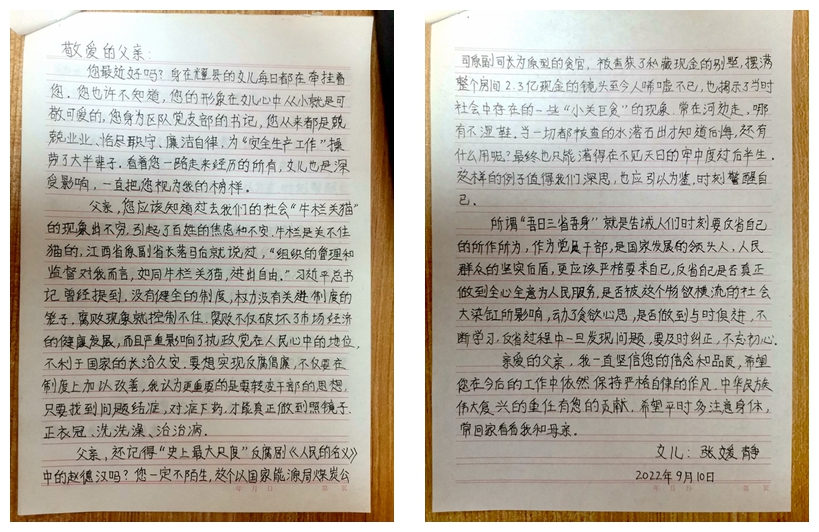 敬爱的父亲:
您最近好吗?身在耀县的女儿每日都在牵挂着
您,您也许不知道,您的形象在女儿心中从小就是可
敬可爱的,您身为区队党支部的书记,您从来都是兢
兢业业、恪尽职守、廉洁自律,为“安全生产工作”操
劳了大半辈子。看着您一路走来经历的所有,女儿也是深
受影响,一直把您视为我的榜样。
父亲,您应该知道过去我们的社会“牛栏关猫”
的现象出不穷,引起了百姓的焦虑和不安。牛栏是关不住
猫的,江西省原副省长落马后就说过,“组织的管理和
监督对我而言,如同牛栏关猫,进出自由。”习近平总书
记曾经提到,没有健全的制度,权力没有关进制度的
笼子,腐败现象就控制不住。腐败不仅破坏了市场经济
的健康发展,而且严重影响了执政党在人民心中的地位,
不利于国家的长治久安。要想实现反腐倡廉,不仅要在
制度上加以改善,我认为更重要的是要转变干部的思想,
只要找到问题结症,对症下药,才能真正做到照镜子、
正衣冠、洗洗澡、治治病。
父亲,还记得“史上最大尺度”反腐剧《人民的名义》
中的赵德汉吗?您一定不陌生,这个以国家能源局煤炭公
司原副司长为原型的贪官,被查获了私藏现金的别墅,摆满
整个房间2.3亿现金的镜头至今人唏嘘不已,也揭示了当时
社会中存在的一些“小关巨贪”的现象。常在河边走,哪
有不湿鞋。当一切都被查的水落石出才知道后悔,还有
什么用呢?最终也只能落得在不见天日的牢中度过后半生。
这样的例子值得我们深思,也应引以为鉴,时刻警醒自
己。
所谓“吾日三省吾身”就是告诫人们时刻要反省自己
的所作所为,作为党员干部,是国家发展的领头人,人民
群众的坚实后盾,更应该严格要求自己,反省自己是否真正
做到全心全意为人民服务,是否被这个物欲横流的社会
大染缸所影响,动了贪欲心思,是否做到与时俱进,不
断学习,反省过程中一旦发现问题,要及时纠正,不忘初心。
亲爱的父亲,我一直坚信您的信念和品质,希望
您在今后的工作中依然保持严格自律的作风,中华民族
伟大复兴的重任有您的贡献,希望平时多注意身体,
常回家看看我和母亲。
女儿:张媛静
2022年9月10日
年 月 日 第 页
年 月 日 第 页